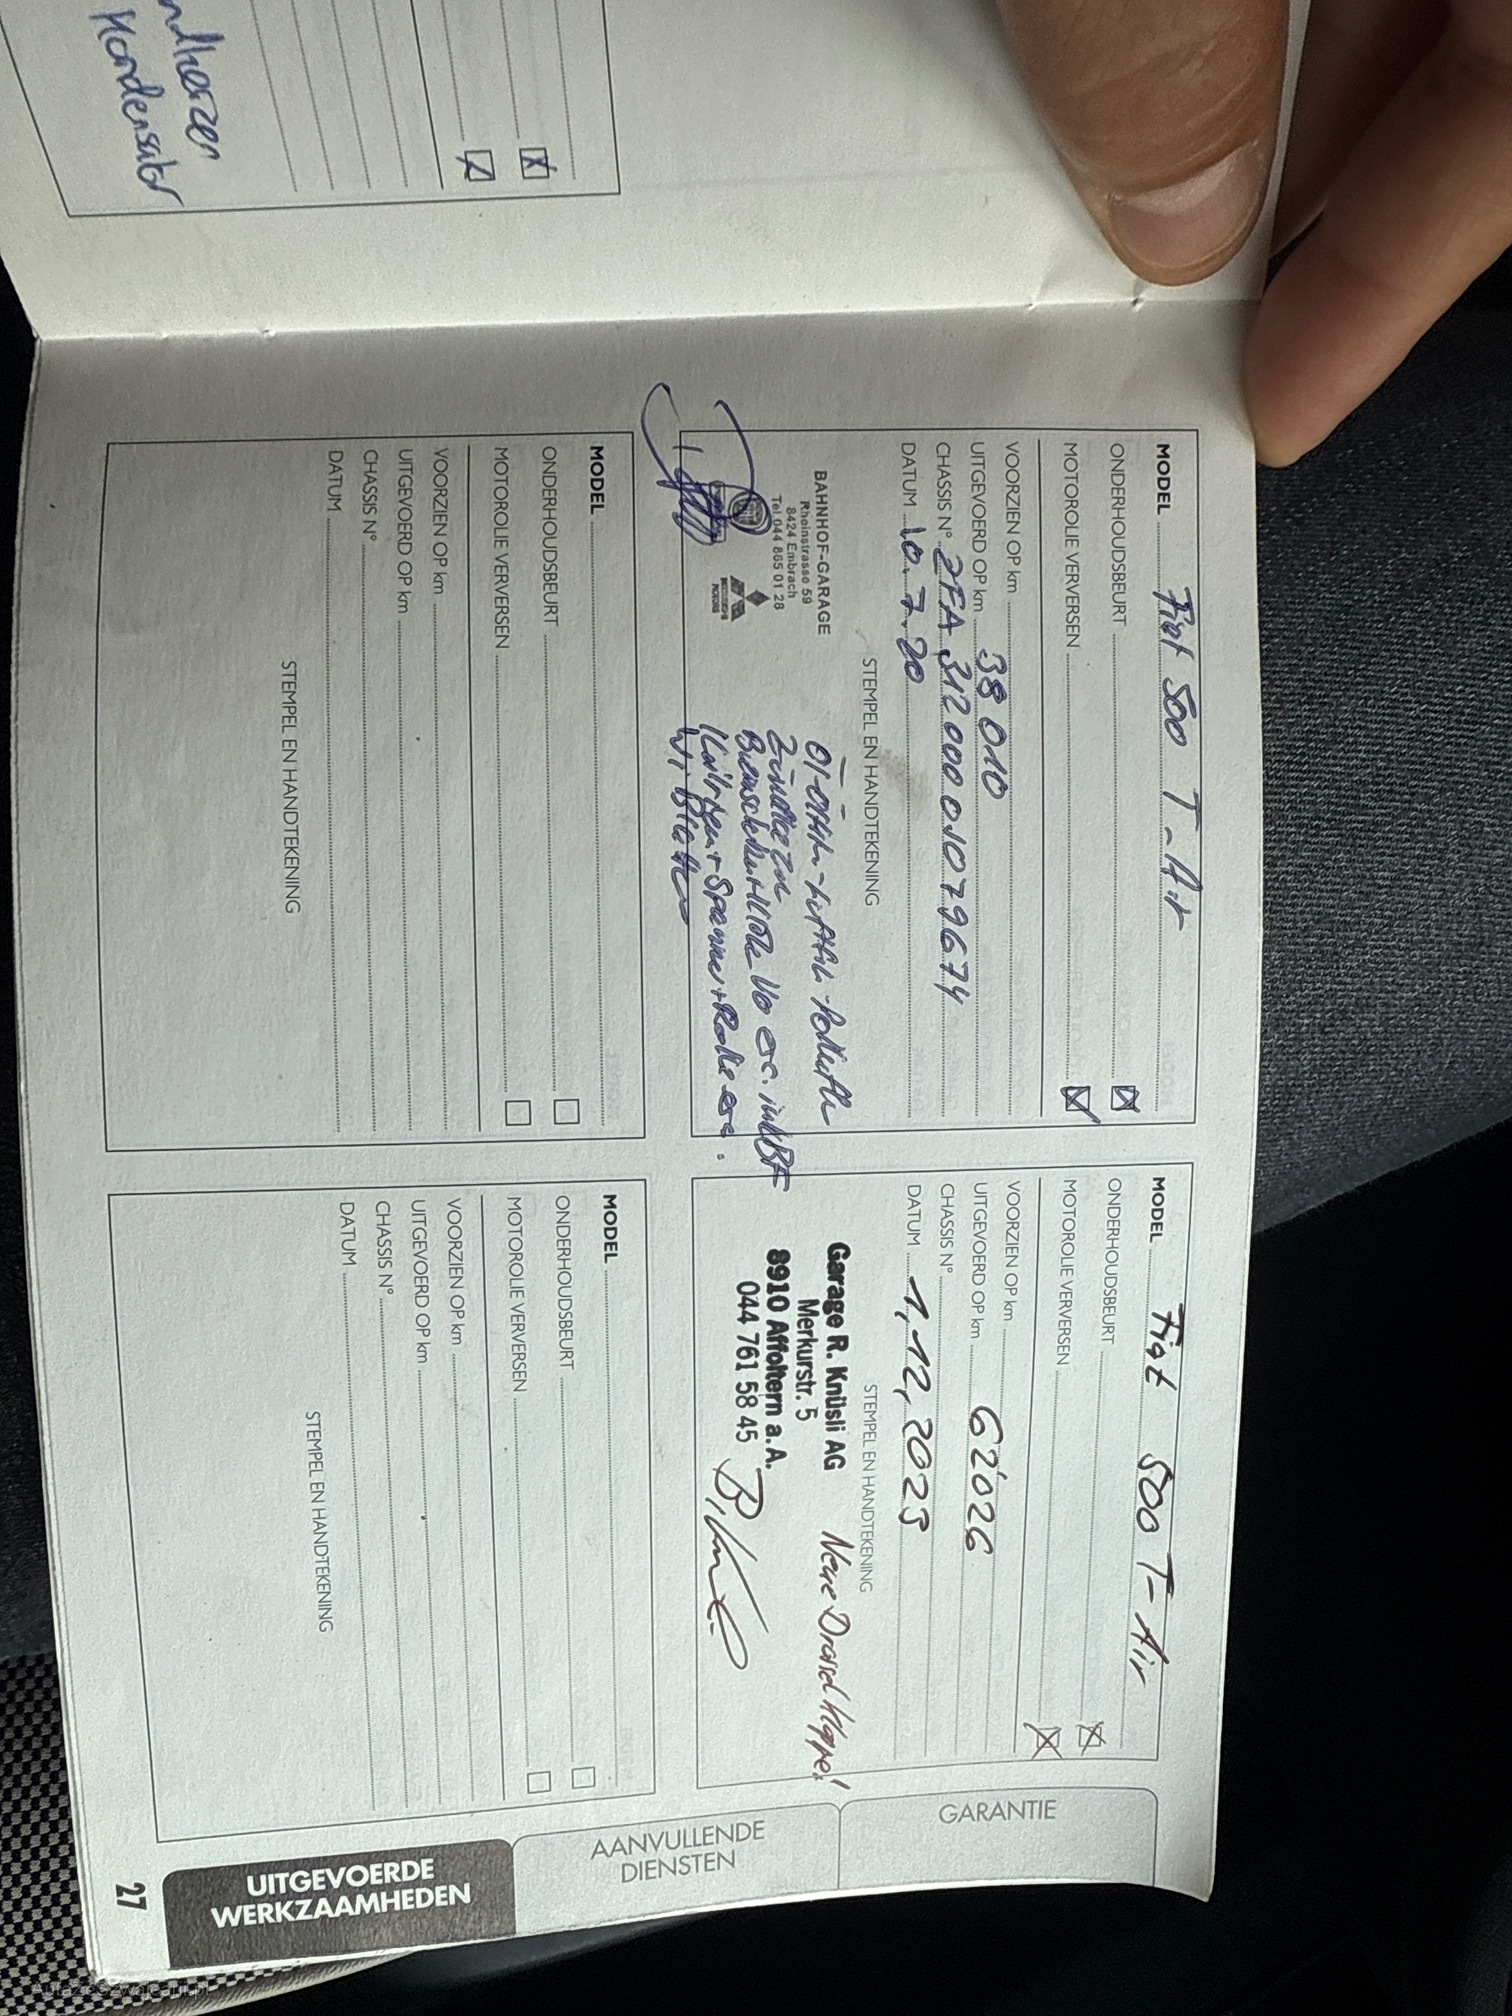 ndkerzen
Kondensator
MODEL Fiat 500 T-Air
ONDERHOUDSBEURT
MOTOROLIE VERVERSEN
VOORZIEN OP km
UITGEVOERD OP km 38 010
CHASSIS N° ZFA 312 000 0J079674
DATUM 10.7.20
STEMPEL EN HANDTEKENING
BAHNHOF-GARAGE
Rheinstrasse 59
8424 Embrach
Tel. 044 865 01 28
MODEL Fiat 500 T-Air
ONDERHOUDSBEURT
MOTOROLIE VERVERSEN
VOORZIEN OP km
UITGEVOERD OP km 62'026
CHASSIS N°
DATUM 1,12,2023
STEMPEL EN HANDTEKENING
Garage R. Knüsli AG
Merkurstr. 5
8910 Affoltern a. A.
044 761 58 45
Neue Drossel Klappe!
MODEL
ONDERHOUDSBEURT
MOTOROLIE VERVERSEN
VOORZIEN OP km
UITGEVOERD OP km
CHASSIS N°
DATUM
STEMPEL EN HANDTEKENING
MODEL
ONDERHOUDSBEURT
MOTOROLIE VERVERSEN
VOORZIEN OP km
UITGEVOERD OP km
CHASSIS N°
DATUM
STEMPEL EN HANDTEKENING
GARANTIE
AANVULLENDE
DIENSTEN
UITGEVOERDE
WERKZAAMHEDEN
27